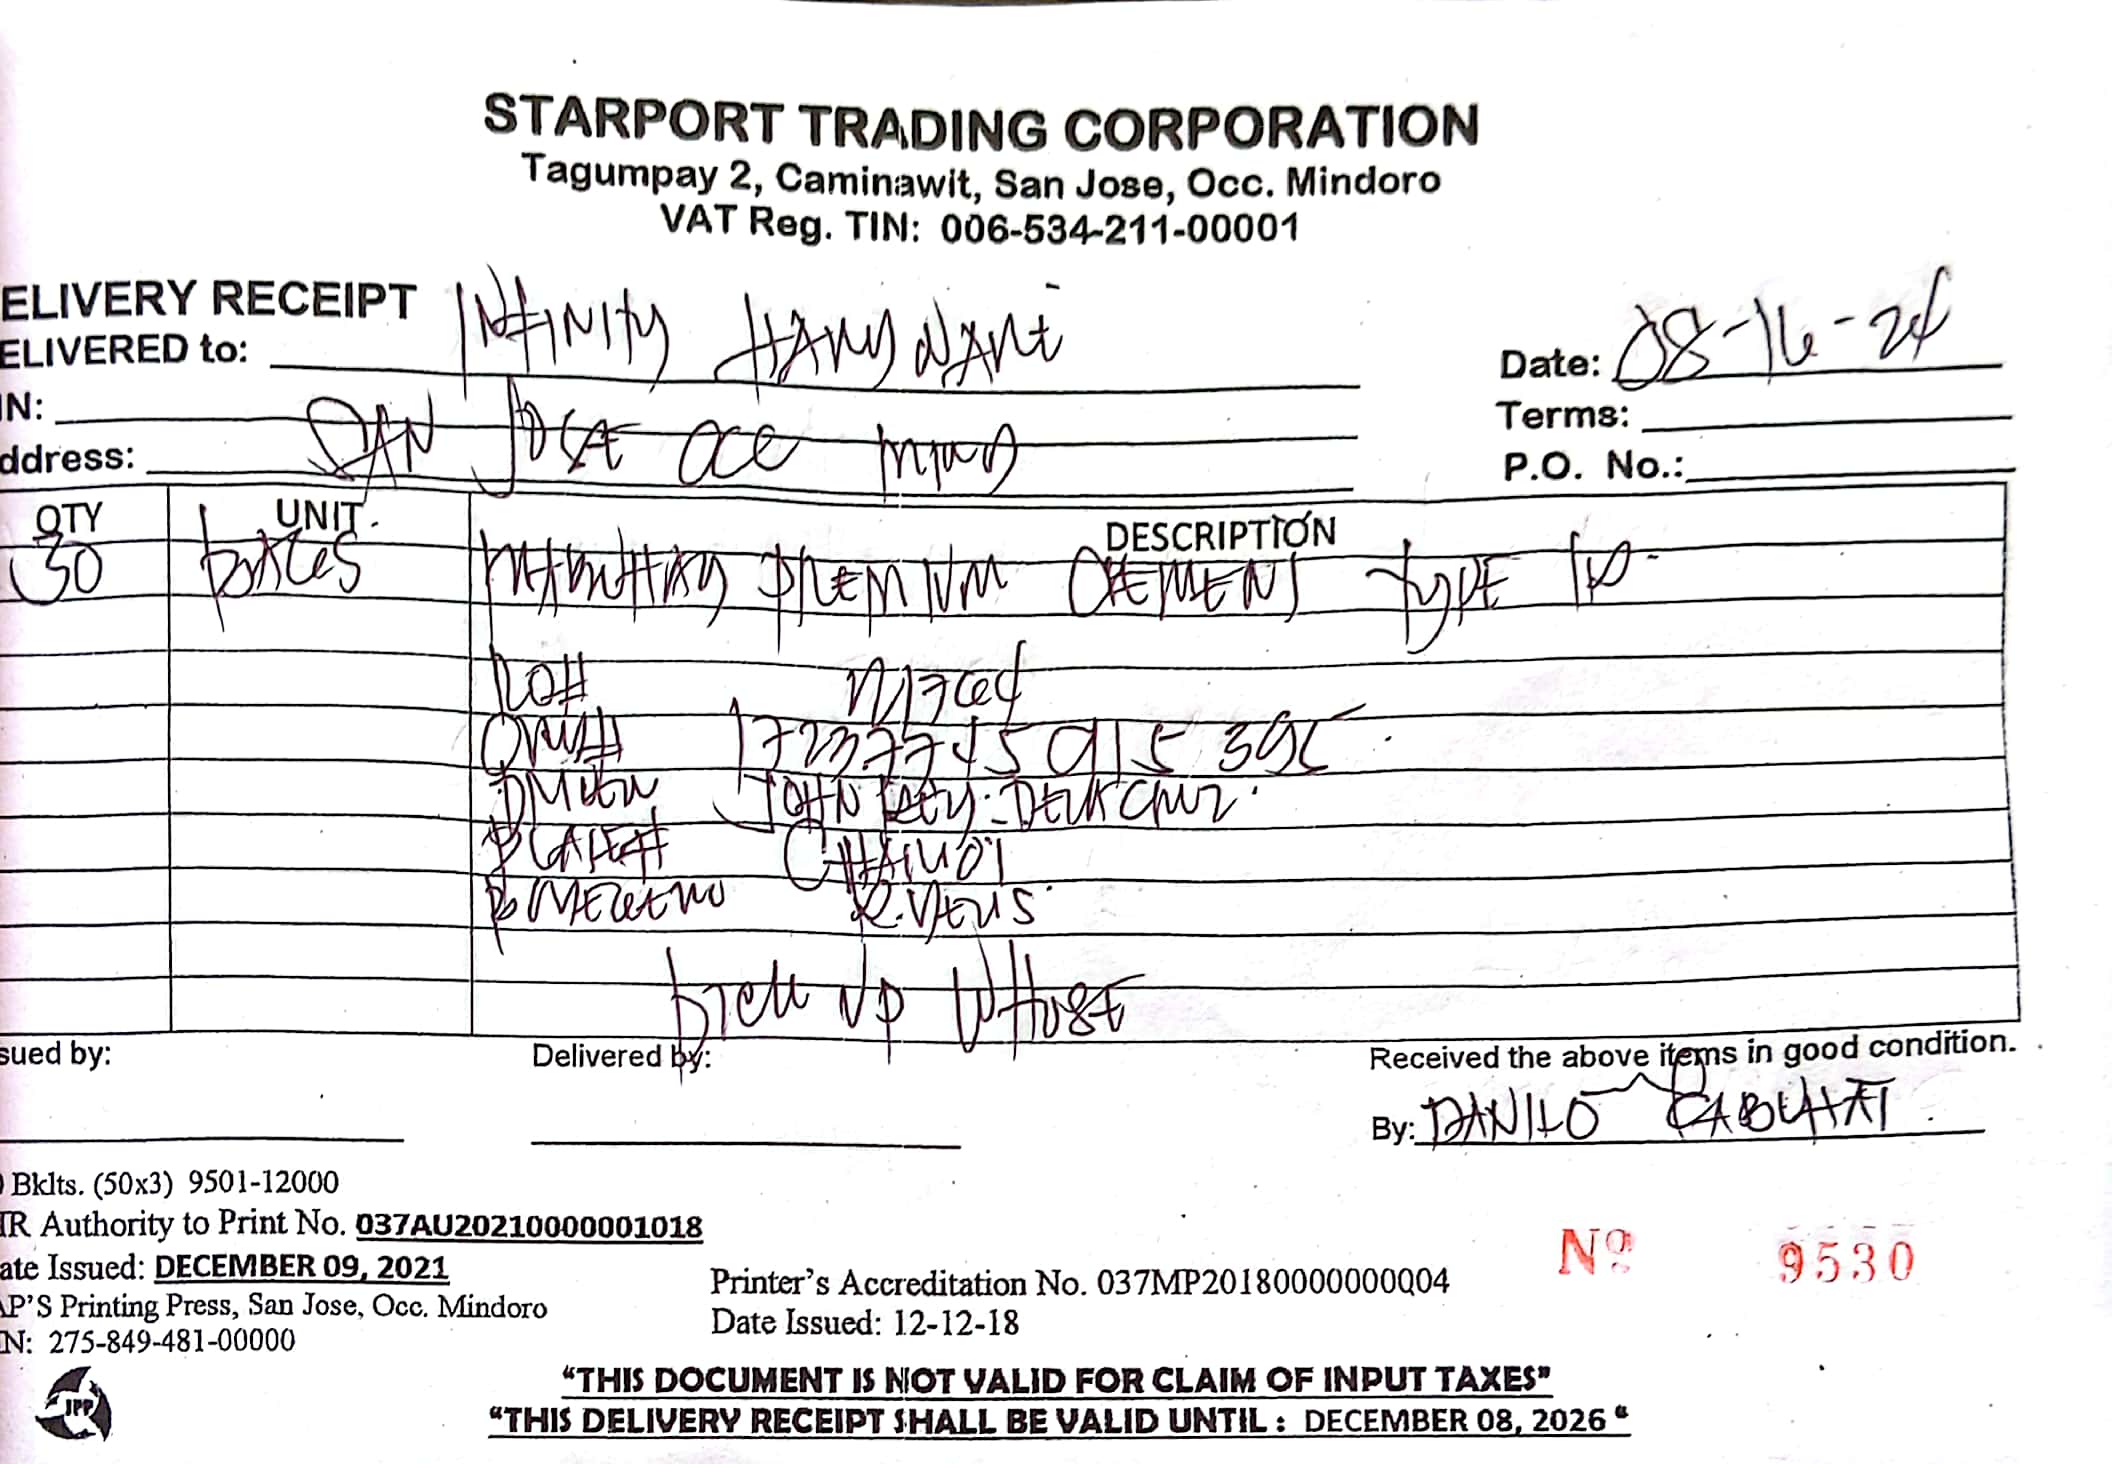 STARPORT TRADING CORPORATION
Tagumpay 2, Caminawit, San Jose, Occ. Mindoro
VAT Reg. TIN: 006-534-211-00001
ELIVERY RECEIPT
ELIVERED to: INFINITY HARDWARE
Date: 08-16-24
IN:
Terms:
ddress: SAN JOSE OCC MINDO
P.O. No.:
QTY UNIT. DESCRIPTION
50 PREMIUM CEMENT TYPE
PO#
JOHN CRUZ
PLATE#
PICK UP WHOSE
sued by: Delivered by: Received the above items in good condition.
By: DANILO CABUHAT
Bklts. (50x3) 9501-12000
IR Authority to Print No. 037AU20210000001018
ate Issued: DECEMBER 09, 2021
Nº 9530
AP'S Printing Press, San Jose, Occ. Mindoro
Printer's Accreditation No. 037MP20180000000004
N: 275-849-481-00000
Date Issued: 12-12-18
JPP
"THIS DOCUMENT IS NOT VALID FOR CLAIM OF INPUT TAXES"
"THIS DELIVERY RECEIPT SHALL BE VALID UNTIL : DECEMBER 08, 2026 "